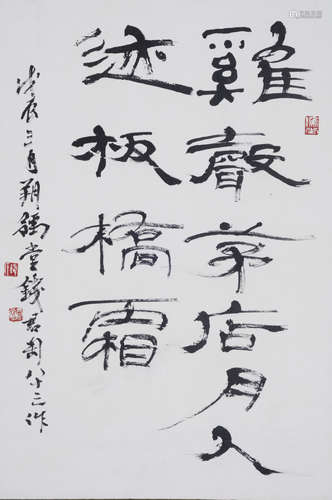 雞聲茅店月人
迹板橋霜
戊辰三月朔豫堂錢君匋八十二作